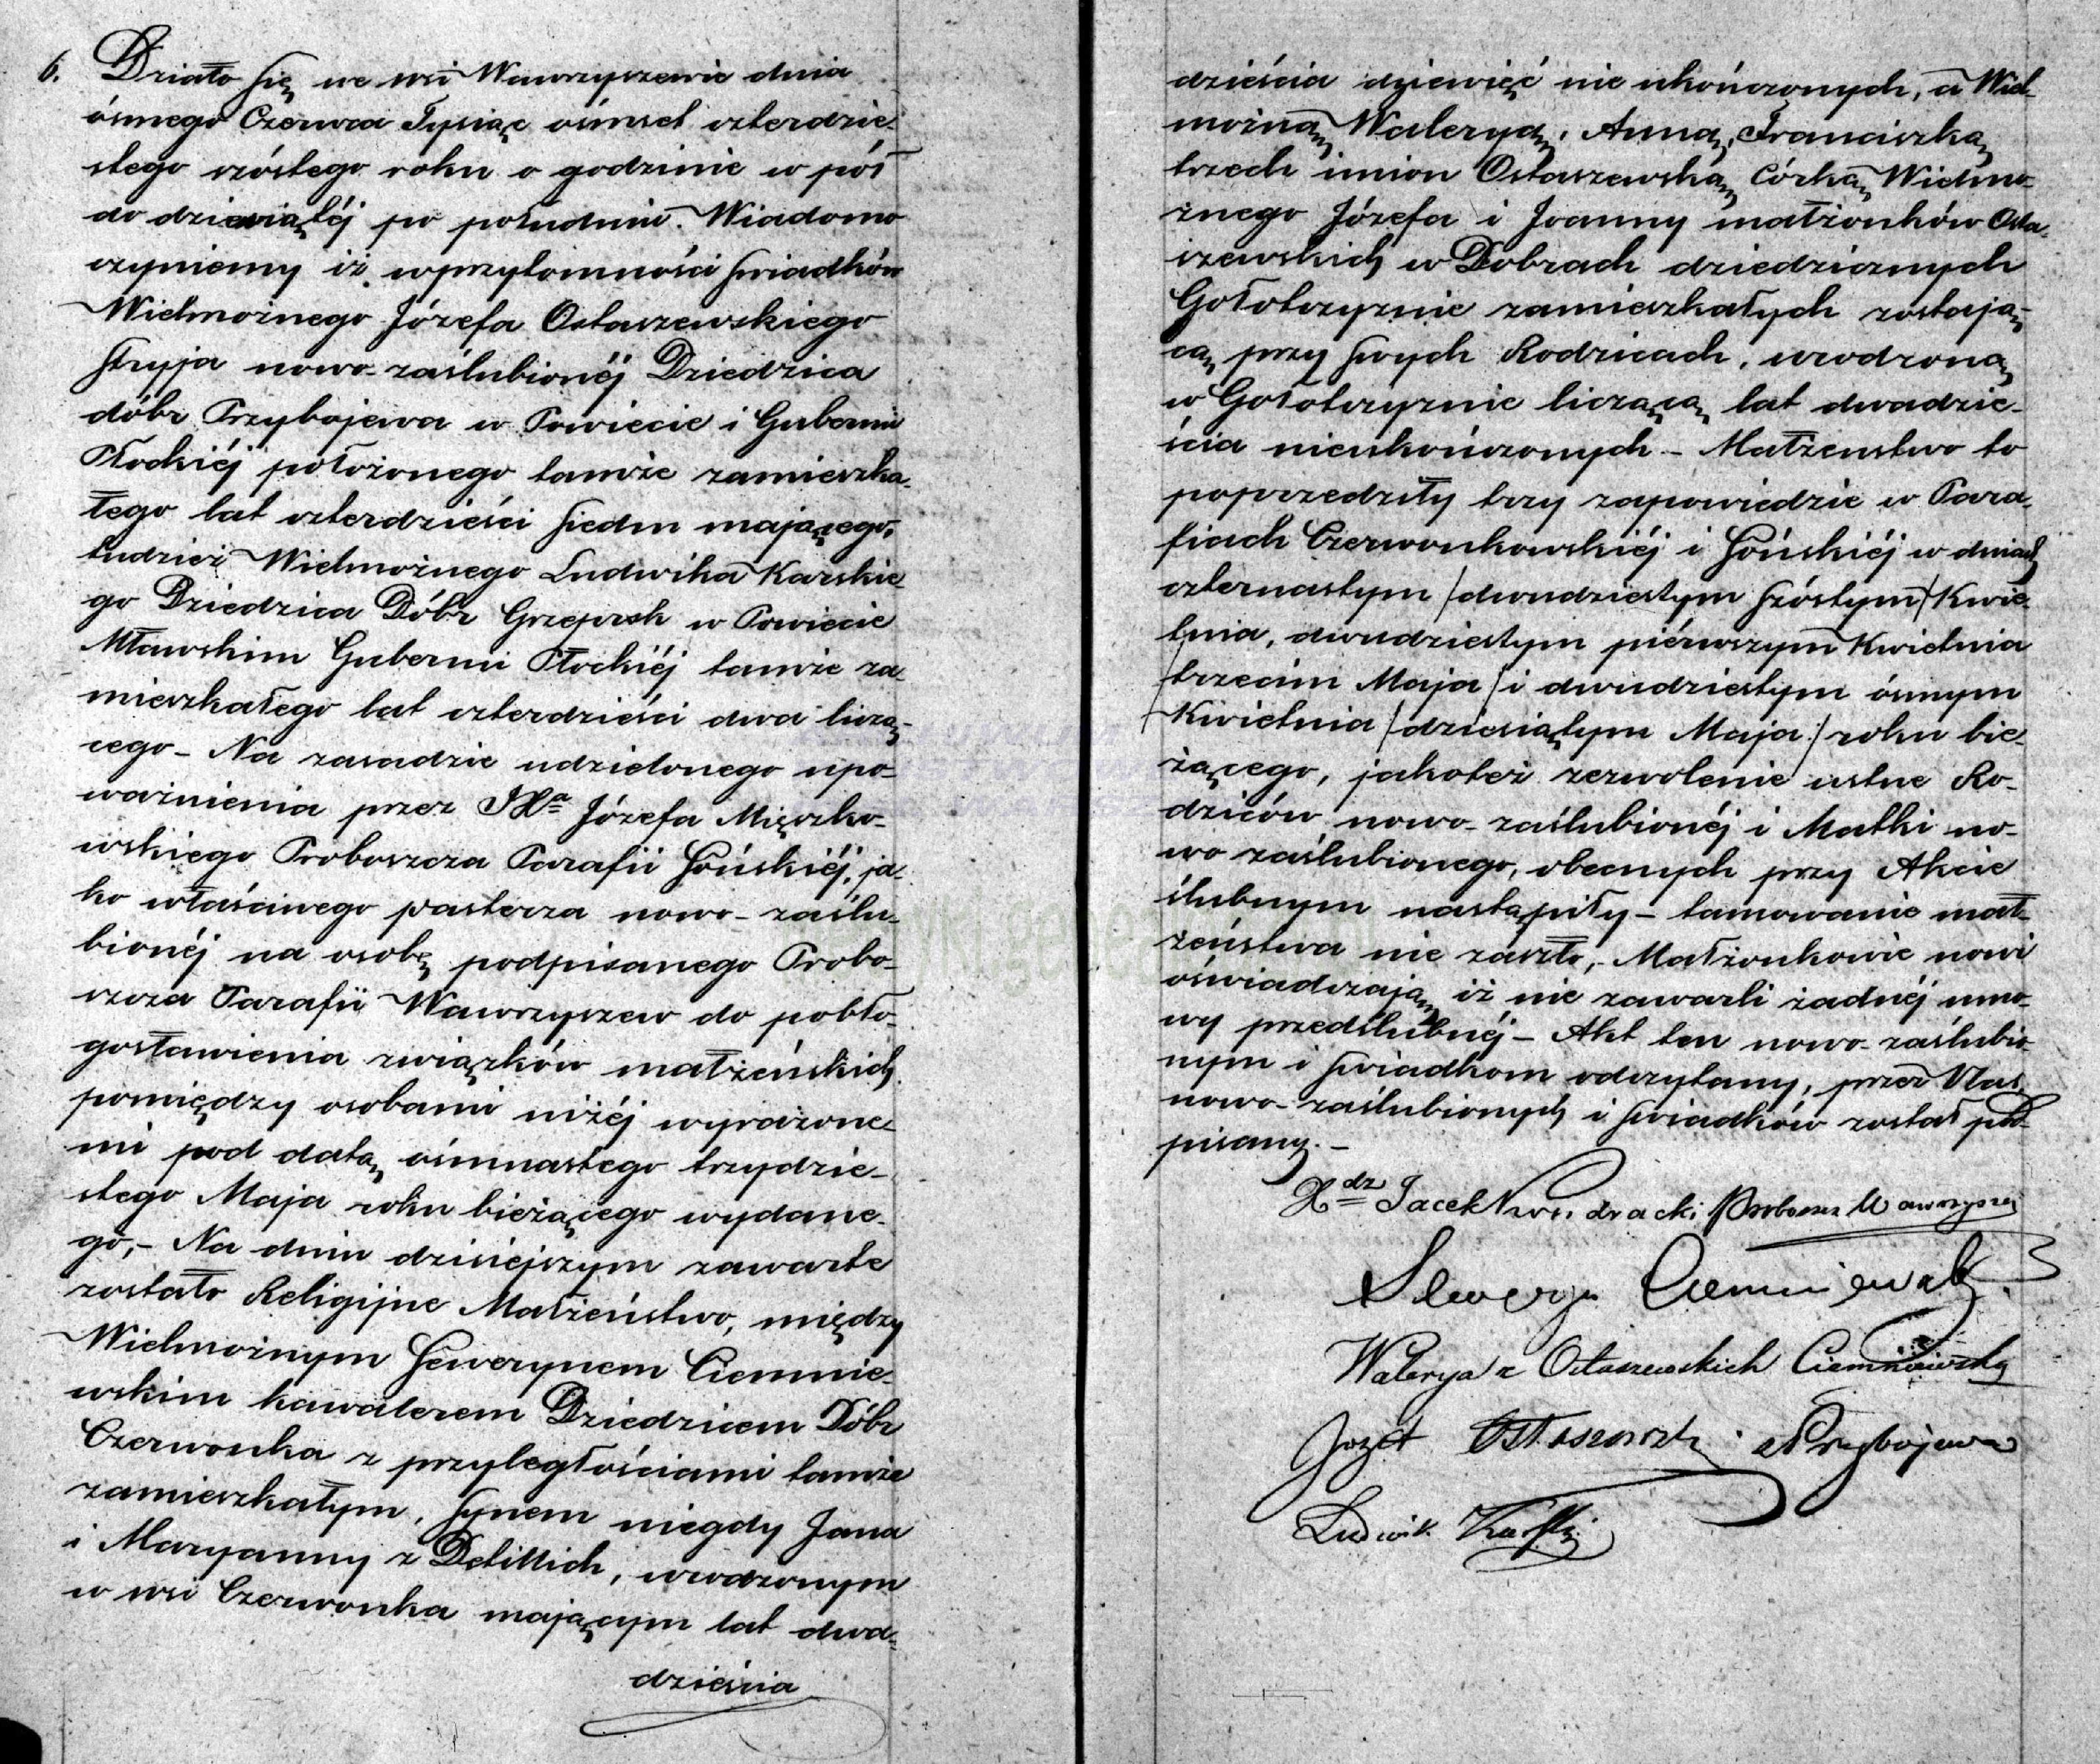 6. Działo się we wsi Wawrzyszewie dnia
ósmego Czerwca Tysiąc ośmset czterdzie-
stego szóstego roku o godzinie w pół
do dziewiątéj po południu. Wiadomo
czyniemy iż wprzytomności świadków
Wielmożnego Józefa Ostaszewskiego
stryja nowo-zaślubionéj Dziedzica
dóbr Przybojewa w Powiecie i Gubernii
Płockiéj położonego tamże zamieszka-
łego lat czterdzieści siedm mającego,
tudzież Wielmożnego Ludwika Karskie
go Dziedzica Dóbr Grzepsk w Powiecie
Mławskim Gubernii Płockiéj tamże za-
mieszkałego lat czterdzieści dwa liczą-
cego – Na zasadzie udzielonego upo-
ważnienia przez JXa Józefa Mięczko-
wskiego Proboszcza Parafii Sońskiéj, ja-
ko właściwego pasterza nowo-zaślu-
bionéj na osobę podpisanego Probo-
szcza Parafii Wawrzyszew do pobło-
gosławienia związków małżeńskich
pomiędzy osobami niżéj wyrażone-
mi pod datą ośmnastego trzydzie-
stego Maja roku bieżącego wydane-
go, – Na dniu dzisiejszym zawarte
zostało Religijne Małżeństwo, między
Wielmożnym Sewerynem Ciemnie-
wskim kawalerem Dziedzicem Dóbr
Czerwonka z przyległościami tamże
zamieszkałym, synem niegdy Jana
i Maryanny z Debittich, urodzonym
w wsi Czerwonka mającym lat dwa-
dzieścia
dzieścia dziewięć nie ukończonych, a Wiel-
możną Waleryą, Anną, Franciszką
trzech imion Ostaszewską, Córką Wielmo-
żnego Józefa i Joanny małżonków Osta-
szewskich w Dobrach dziedzicznych
Gołotczyznie zamieszkałych zostają-
cą przy swych Rodzicach, urodzoną
w Gołotczyznie liczącą lat dwadzie-
ścia nieukończonych – Małżenstwo to
poprzedziły trzy zapowiedzie w Para-
fiach Czerwonkowskiéj i Sońskiéj w dniach
czternastym /dwudziestym szóstym/ Kwie-
tnia, dwudziestym piérwszym Kwietnia
/trzecim Maja/ i dwudziestym ósmym
Kwietnia /dziesiątym Maja/ roku bie-
żącego, jakoteż zezwolenie ustne Ro-
dziców nowo-zaślubionéj i Matki no-
wo zaślubionego, obecnych przy Akcie
ślubnym nastąpiły – tamowanie mał-
żeństwa nie zaszło, – Małżonkowie nowi
oświadczają iż nie zawarli żadnéj umo-
wy przedślubnéj – Akt ten nowo-zaślubio-
nym i świadkom odczytany, przez Nas,
nowo-zaślubionych i świadków został pod-
pisany. –
Xdz Jacek Proboszcz Wawrzyszew
Seweryn Ciemniewski
Walerya z Ostaszewskich Ciemniewska
Józef Ostaszewski z Przybojewa
Ludwik Karski